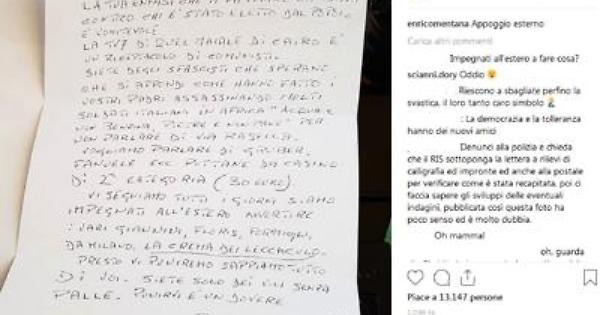 LA TUA ENFASI CHE TI FA
CONTRO CHI È STATO ELETTO DAL POPOLO
È VOMITEVOLE
LA TV7 DI QUEL MAIALE DI CAIRO È
UN RICETTACOLO DI COMUNISTI.
SIETE DEGLI SFASCISTI CHE SPERANO
CHE SI AFFONDI COME HANNO FATTO I
VOSTRI PADRI ASSASSINANDO MOLTI
SOLDATI ITALIANI IN AFRICA "ACQUA E
NON BENZINA, PIETRE E NON PANE" PER
NON PARLARE DI VIA RASELLA.
VOGLIAMO PARLARE DI GRUBER,
PANELLE ECC PUTTANE DA CASINO
DI 2ª CATEGORIA (30 EURO).
VI SEGUIAMO TUTTI I GIORNI SIAMO
IMPEGNATI ALL'ESTERO AVVERTIRE
I VARI GIANNINI, FLORIS, FORMIGLI,
DAMILANO, LA CREMA DEI LECCACULO.
PRESTO VI PUNIREMO SAPPIAMO TUTTO
DI VOI. SIETE SOLO DEI VILI SENZA
PALLE. PUNIRVI È UN DOVERE
enricomentana Appoggio esterno
Carica altri commenti
Impegnati all'estero a fare cosa?
scianni.dory Oddio 😟
Riescono a sbagliare perfino la
svastica, il loro tanto caro simbolo
: La democrazia e la tolleranza
hanno dei nuovi amici
Denunci alla polizia e chieda
che il RIS sottoponga la lettera a rilievi di
calligrafia ed impronte ed anche alla postale
per verificare come è stata recapitata, poi ci
faccia sapere gli sviluppi delle eventuali
indagini, pubblicata così questa foto ha
poco senso ed è molto dubbia.
Oh mamma!
oh, guarda
Piace a 13.147 persone